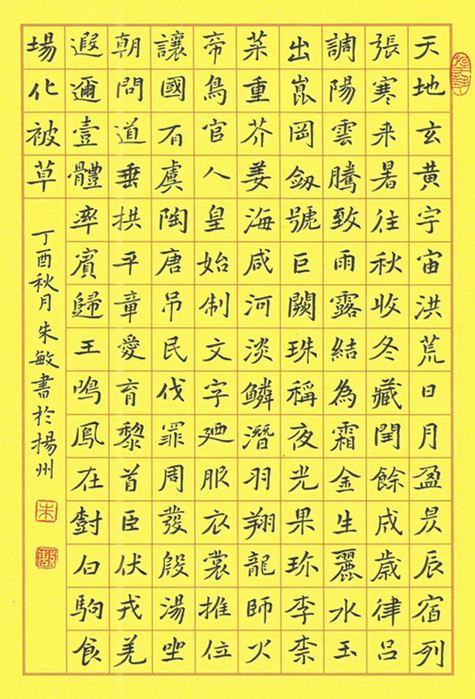 天地玄黃宇宙洪荒日月盈昃辰宿列
張寒来暑往秋收冬藏閏餘成歲律呂
調陽雲騰致雨露結為霜金生麗水玉
出崑岡劔號巨闕珠稱夜光果珎李柰
菜重芥姜海咸河淡鱗潛羽翔龍師火
帝鳥官人皇始制文字廼服衣裳推位
讓國有虞陶唐吊民伐罪周發殷湯坐
朝問道垂拱平章愛育黎首臣伏戎羌
遐邇壹體率賓歸王鳴鳳在樹白駒食
場化被草
丁酉秋月朱敏書於揚州
朱